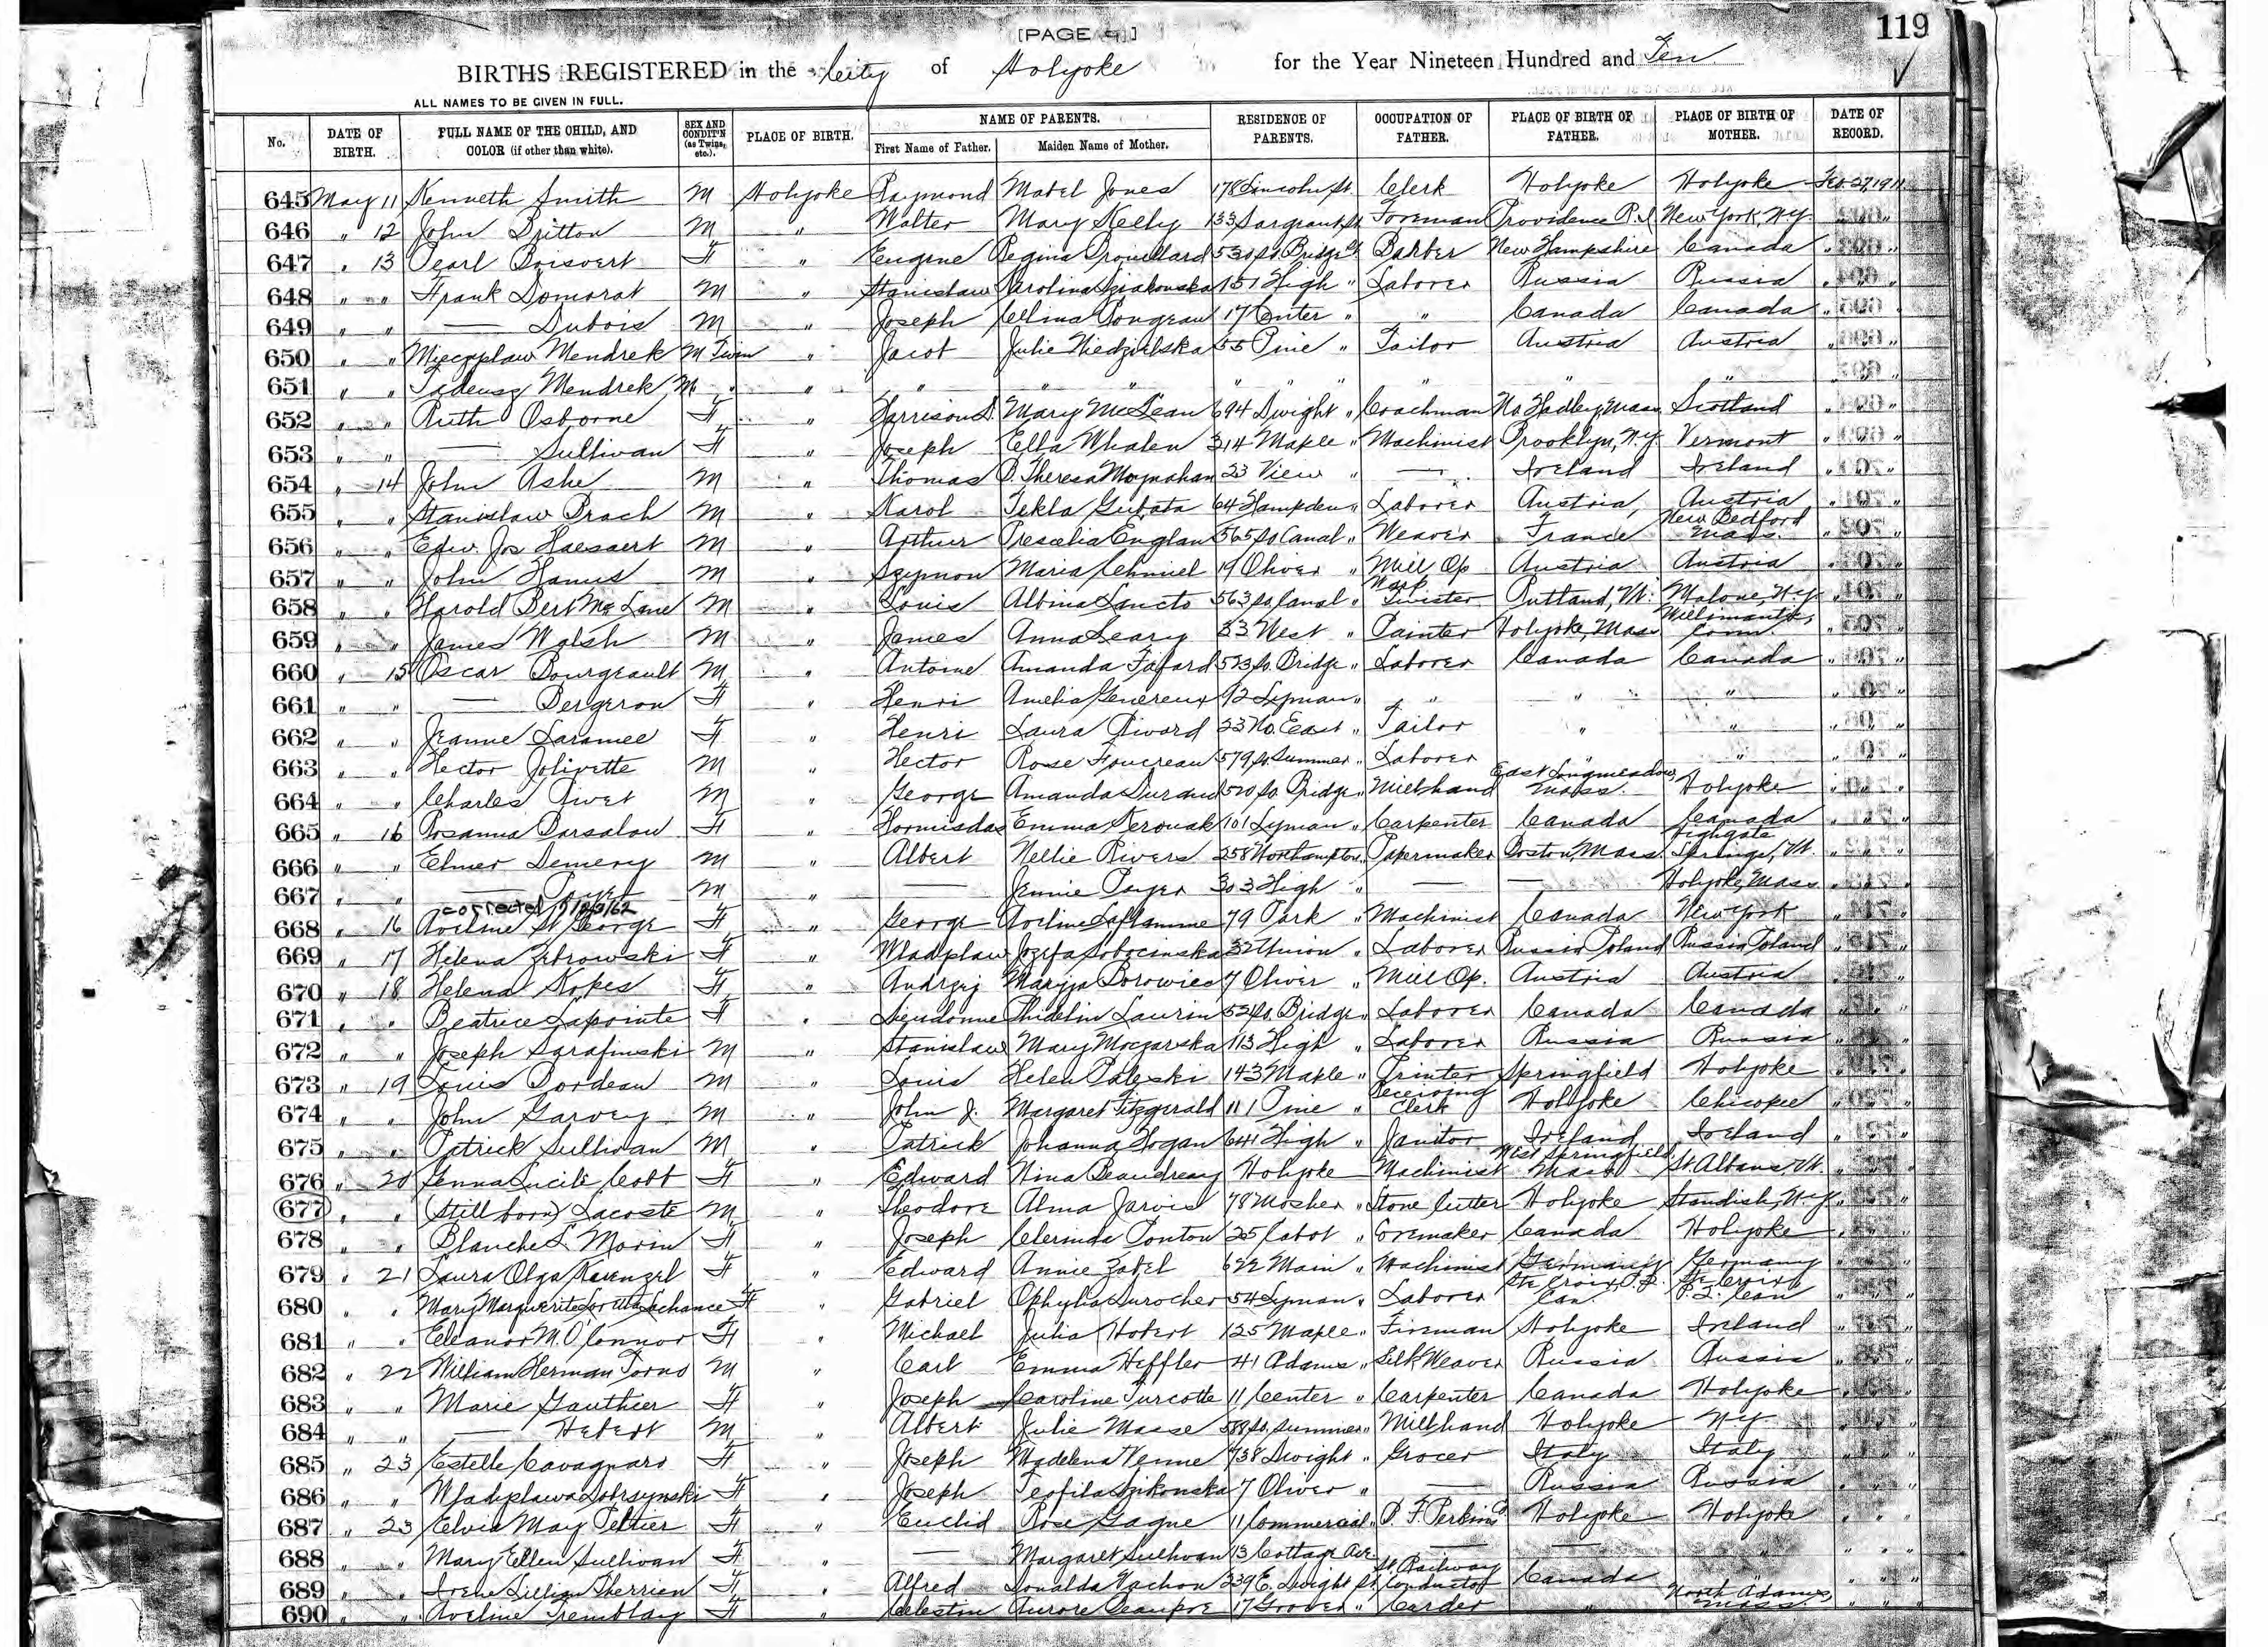 [PAGE 9]
119
BIRTHS REGISTERED in the City of Holyoke for the Year Nineteen Hundred and Ten
ALL NAMES TO BE GIVEN IN FULL.
No. DATE OF BIRTH. FULL NAME OF THE CHILD, AND COLOR (if other than white). SEX AND CONDIT'N (as Twins, etc.). PLACE OF BIRTH. NAME OF PARENTS. First Name of Father. Maiden Name of Mother. RESIDENCE OF PARENTS. OCCUPATION OF FATHER. PLACE OF BIRTH OF FATHER. PLACE OF BIRTH OF MOTHER. DATE OF RECORD.
645 May 11 Kenneth Smith M Holyoke Raymond Mabel Jones 178 Lincoln St. Clerk Holyoke Holyoke Feb 27, 1911
646 " 12 John Britton M " Walter Mary Kelly 133 Sargeant St Foreman Providence R.I. New York, N.Y. " "
647 " 13 Pearl Boisvert F " Eugene Regina Drouillard 530 So. Bridge St Barber New Hampshire Canada " "
648 " " Frank Domorat M " Stanislaw 151 High " Laborer Russia Russia " "
649 " " — Dubois M " Joseph Celina Pongeau 17 Center " " Canada Canada " "
650 " " Mieczyslaw Mendrek M Twin " Jacob Julie Niedzielska 55 Pine " Tailor Austria Austria " "
651 " " Tadeusz Mendrek M " " " " " " " " " " " " "
652 " " Ruth Osborne F " Harrison D. Mary McLean 694 Dwight " Coachman No. Hadley, Mass. Scotland " "
653 " " — Sullivan F " Joseph Ella Whalen 314 Maple " Machinist Brooklyn, N.Y. Vermont " "
654 " 14 John Ashe M " Thomas B. Theresa Moynahan 23 View " — Ireland Ireland " "
655 " " Stanislaw Prach M " Karol Tekla Gubata 64 Hampden " Laborer Austria, Austria " "
656 " " Edw. Jos Haesaert M " Arthur Englan 565 So Canal " Weaver France New Bedford Mass. " "
657 " " John Hanus M " Szymon Maria Chmiel 19 Oliver " Mill Op Austria Austria " "
658 " " Harold Bert McLane M " Louis Albina Sancto 563 So. Canal " Warp Twister Rutland, Vt. Malone, N.Y. " "
659 " " James Walsh M " James Anna Leary 33 West " Painter Holyoke, Mass Willimantic, Conn. " "
660 " 15 Oscar Bourgeault M " Antoine Amanda Fafard 523 So. Bridge " Laborer Canada Canada " "
661 " " — Bergeron F " Henri Amelia Genereux 92 Lyman " " " " " "
662 " " Jeanne Laramee F " Henri Laura Rivard 23 No. East " Tailor " " " "
663 " " Hector Jolivette M " Hector Rose Foucreau 579 So. Summer " Laborer " " " "
664 " " Charles Rivet M " George Amanda Durand 520 So. Bridge " Millhand East Longmeadow, Mass. Holyoke " "
665 " 16 Rosanna Barsalou F " Hormisdas Emma Kerouak 101 Lyman " Carpenter Canada Canada " "
666 " " Elmer Demeroy M " Albert Nellie Rivers 258 Northampton " Papermaker Boston, Mass. Highgate Springs, Vt. " "
667 " " — Payer M " — Jennie Payer 303 High " — — Holyoke, Mass. " "
corrected
668 " 16 Aveline St George F " George Aveline Laflamme 79 Park " Machinist Canada New York " "
669 " 17 Helena Zebrowski F " Wladyslaw Jozefa Sobocinska 32 Union " Laborer Russia Poland Russia Poland " "
670 " 18 Helena Kopes F " Andrzej Maryja Borowiec 7 Oliver " Mill Op. Austria Austria " "
671 " " Beatrice Lapointe F " Laurin 52 So. Bridge " Laborer Canada Canada " "
672 " " Joseph Sarafinski M " Stanislaw Mary Moczarska 113 High " Laborer Russia Russia " "
673 " 19 Louis Bordeau M " Louis Helen Paleski 143 Maple " Printer Springfield Holyoke " "
674 " " John Garvey M " John J. Margaret Fitzgerald 111 Pine " Receiving Clerk Holyoke Chicopee " "
675 " " Patrick Sullivan M " Patrick Johanna Hogan 641 High " Janitor Ireland Ireland " "
676 " 20 Genna Lucile Cobb F " Edward Nina Beaudreau Holyoke Machinist West Springfield Mass St. Albans, Vt. " "
677 " " (Stillborn) Lacoste M " Theodore Alma Jarvis 78 Mosher " Stone Cutter Holyoke Standish, N.Y. " "
678 " " Blanche L. Morin F " Joseph Clerinda Ponton 25 Cabot " Coremaker Canada Holyoke " "
679 " 21 Laura Olga Kuenzel F " Edward Annie Zabel 622 Main " Machinist Germany Germany " "
680 " " Mary Marguerite Loretta Lachance F " Gabriel Ophylia Durocher 54 Lyman " Laborer Ste Croix P.Q. Can. Ste Croix P.Q. Can " "
681 " " Eleanor M. O'Connor F " Michael Julia Hobert 125 Maple " Fireman Holyoke Ireland " "
682 " 22 William Herman Torno M " Carl Emma Heffler 41 Adams " Silk Weaver Russia Russia " "
683 " " Marie Gauthier F " Joseph Caroline Turcotte 11 Center " Carpenter Canada Holyoke " "
684 " " — Hebert M " Albert Julie Masse 588 So. Summer " Millhand Holyoke N.Y. " "
685 " 23 Estelle Cavagnaro F " Joseph Madelena Venne 738 Dwight " Grocer Italy Italy " "
686 " " Wladyslawa Dobrsynski F " Joseph Teofila Szikonska 7 Oliver " — Russia Russia " "
687 " 23 Elvia May Peltier F " Euclid Rose Gagne 11 Commercial " P. F. Perkins Holyoke Holyoke " "
688 " " Mary Ellen Sullivan F " — Margaret Sullivan 13 Cottage Ave. — — " " "
689 " " Irene Lillian Therrien F " Alfred Donalda Vachon 239 E. Dwight St. St. Railway Conductor Canada " "
690 " " Aveline Tremblay F " Celestin Aurore Beaupre 17 Grover " Carder " North Adams, Mass. " "